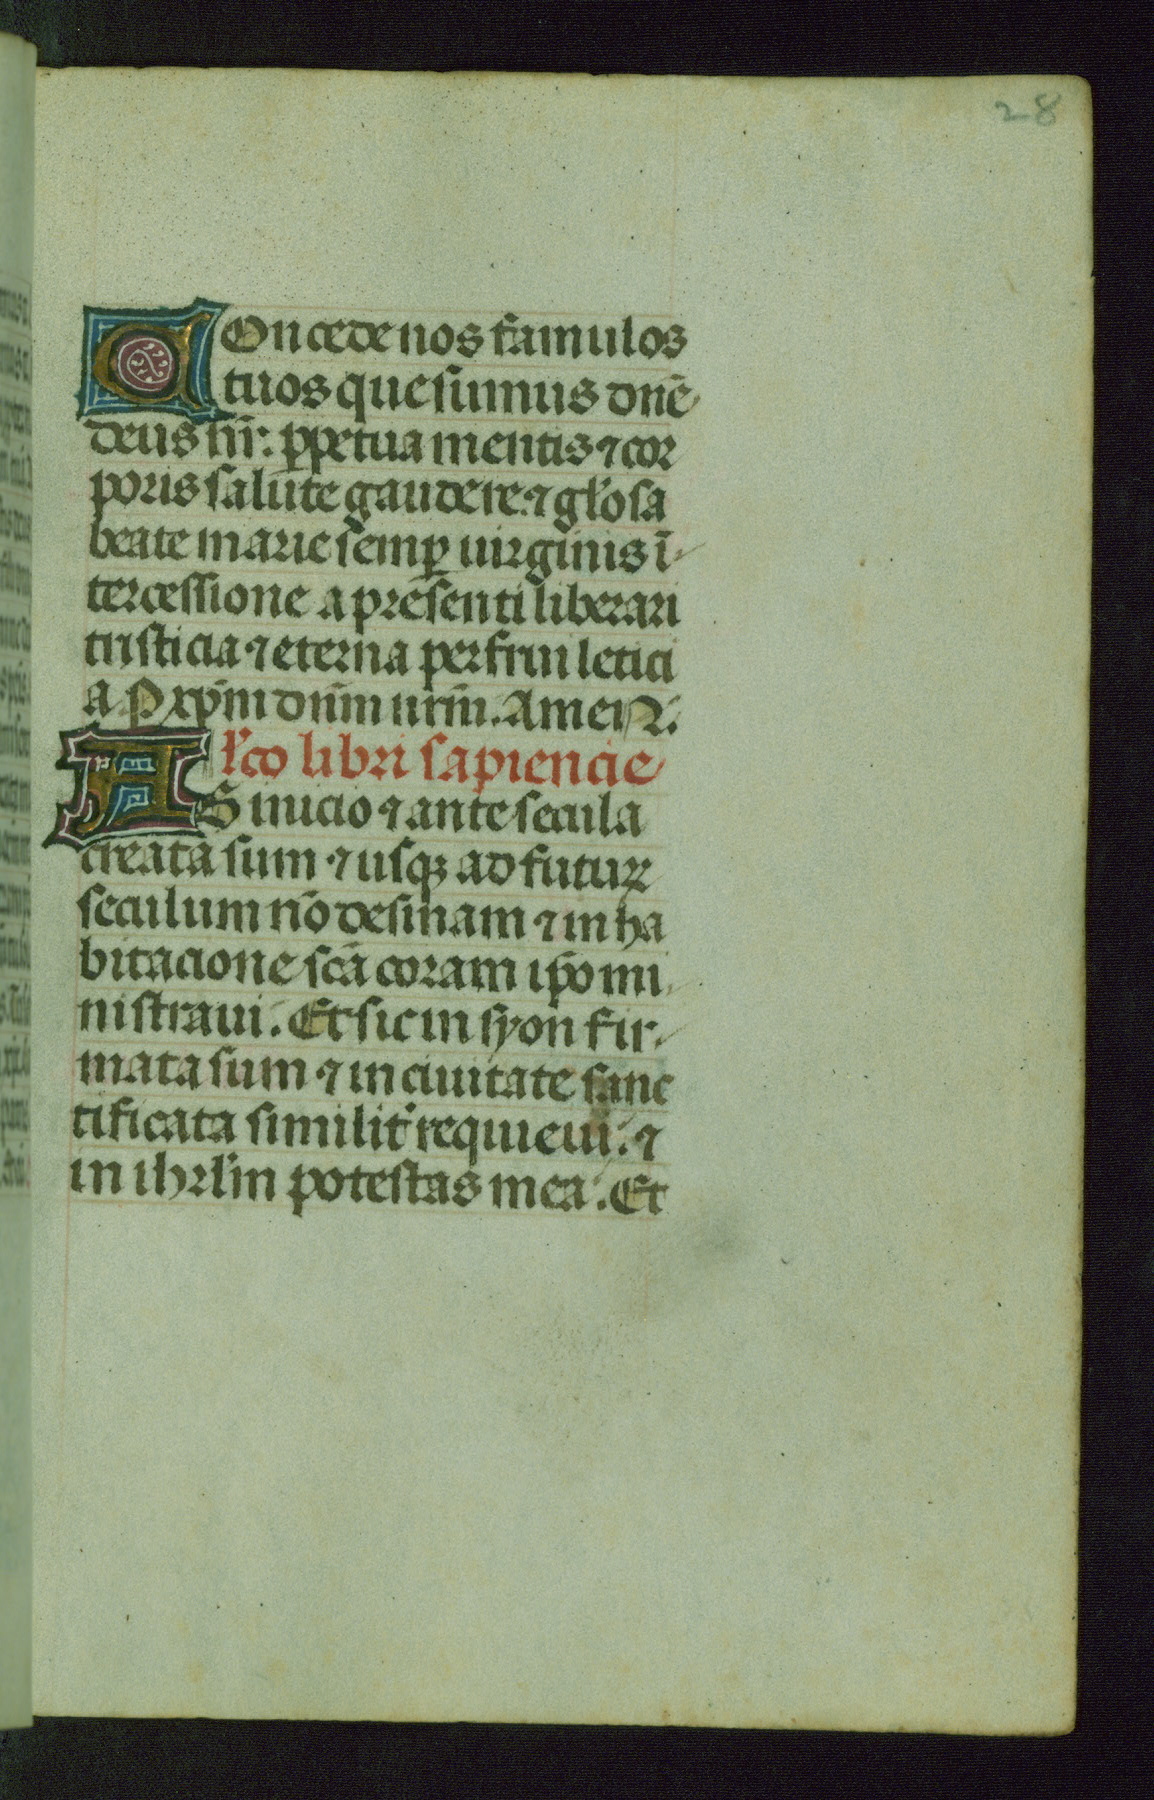 28
COncede nos famulos
tuos quesumus dn̄e
deus nr̄: ꝑpetua mentis ⁊ cor
poris salute gaudere. ⁊ gl̓osa
beate marie semꝑ uirginis ī
tercessione a presenti liberari
tristicia ⁊ eterna perfrui letici
a P xp̄m dn̄m nr̄m. Amen.
lc̓o libri sapiencie
AB inicio ⁊ ante secula
creata sum ⁊ usqꝫ ad futuꝝ
seculum nō desinam ⁊ in ha
bitacione sc̄a coram ip̄o mi
nistraui. Et sic in syon fir
mata sum ⁊ in ciuitate sanc
tificata similit̓ requieui. ⁊
in ihrl̄m potestas mea. Et